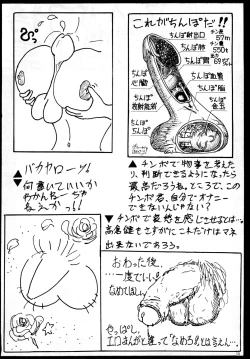 これがちんぽだ!!
チン長
57m
チン重
550t
ちんぽ射出口
ちんぽ肺
ちんぽ胃
ちんぽ心臓
ちんぽ血管
ちんぽ脳
ちんぽ放射能袋
ちんぽ金玉
ちんぽしんぼ
バカヤローッ!
何書いていいか
わかんねーじゃ
ねえかっ!
▲チンポで物事を考えた
り、判断できるようになったら
最高だろうね。ところで、この
チンポ君、自分でオナニー
できないんじゃない?
▼チンポで哀愁を感じさせるとは…。
高倉健もさすがにこれだけはマネ
出来ないであろう。
おわった後、
一度でいい!
なめてほしい。
やっぱし、
エロまんがと違って「なめろ」とは言えん…。